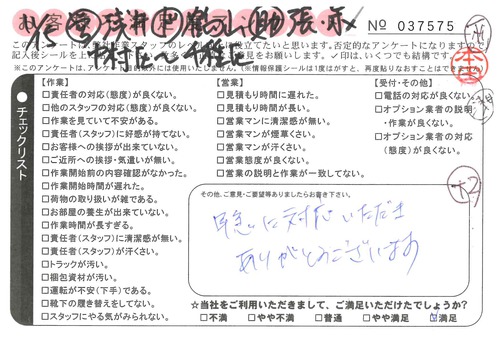 No 037575
このアンケートは、弊社作業スタッフのレベル向上に役立てたいと思います。否定的なアンケートになりますので
記入後シールを上
見をお願いします。✓印は、いくつでも結構です。
(※このアンケートは、アンケート目的以外には使用いたしません。)(情報保護シールは1度がすと、再度貼りなおすことはできません)
チェックリスト
【作業】
□責任者の対応(態度)が良くない。
□他のスタッフの対応(態度)が良くない。
□作業を見ていて不安がある。
□責任者(スタッフ)に好感が持てない。
□お客様への挨拶が出来ていない。
□ご近所への挨拶・気遣いが無い。
□作業開始前の内容確認がなかった。
□作業開始時間が遅れた。
□荷物の取り扱いが雑である。
□お部屋の養生が出来ていない。
□作業時間が長すぎる。
□責任者(スタッフ)に清潔感が無い。
□責任者(スタッフ)が汗くさい。
□トラックが汚い。
□梱包資材が汚い。
□運転が不安(下手)である。
□靴下の履き替えをしてない。
□スタッフにやる気がみられない。
【営業】
□見積もり時間に遅れた。
□見積もり時間が長い。
□営業マンに清潔感が無い。
□営業マンが煙草くさい。
□営業マンが汗くさい。
□営業態度が良くない。
□営業の説明と作業が一致してない。
【受付・その他】
□電話の対応が良くない。
□オプション業者の説明
・作業が良くない。
□オプション業者の対応
(態度)が良くない。
その他、ご意見・ご要望等ありましたらお書き下さい。
早急に対応いただき
ありがとうございます
☆当社をご利用いただきまして、ご満足いただけたでしょうか?
□不満 □やや不満 □普通 □やや満足 ☑満足